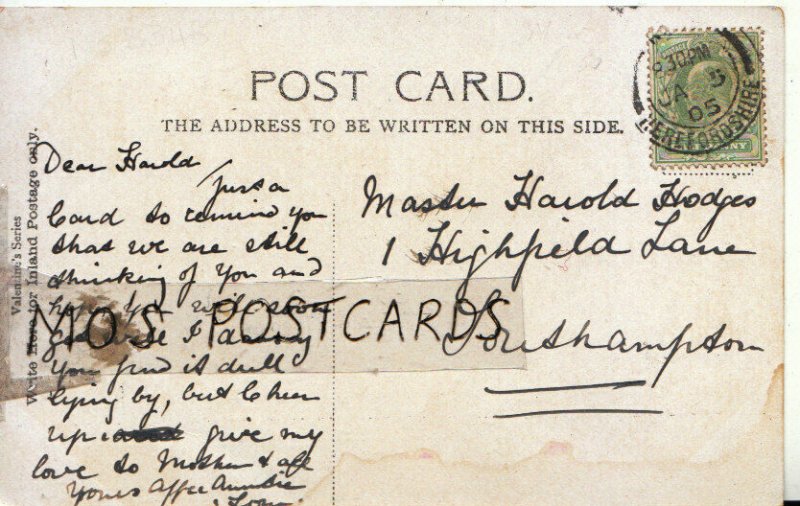 POST CARD.
THE ADDRESS TO BE WRITTEN ON THIS SIDE.
Valentine's Series
Write Here for Inland Postage only.
6 30 PM
JA 5
05
HEREFORDSHIRE
Dear Harold
Just a
Card to remind you
that we are still
thinking of you and
hope you will soon
get well I
you find it dull
lying by, but Cheer
up give my
love to Mother & all
Yours Affec Auntie
Master Harold Hodges
1 Highfield Lane
Southampton
MOS POSTCARDS